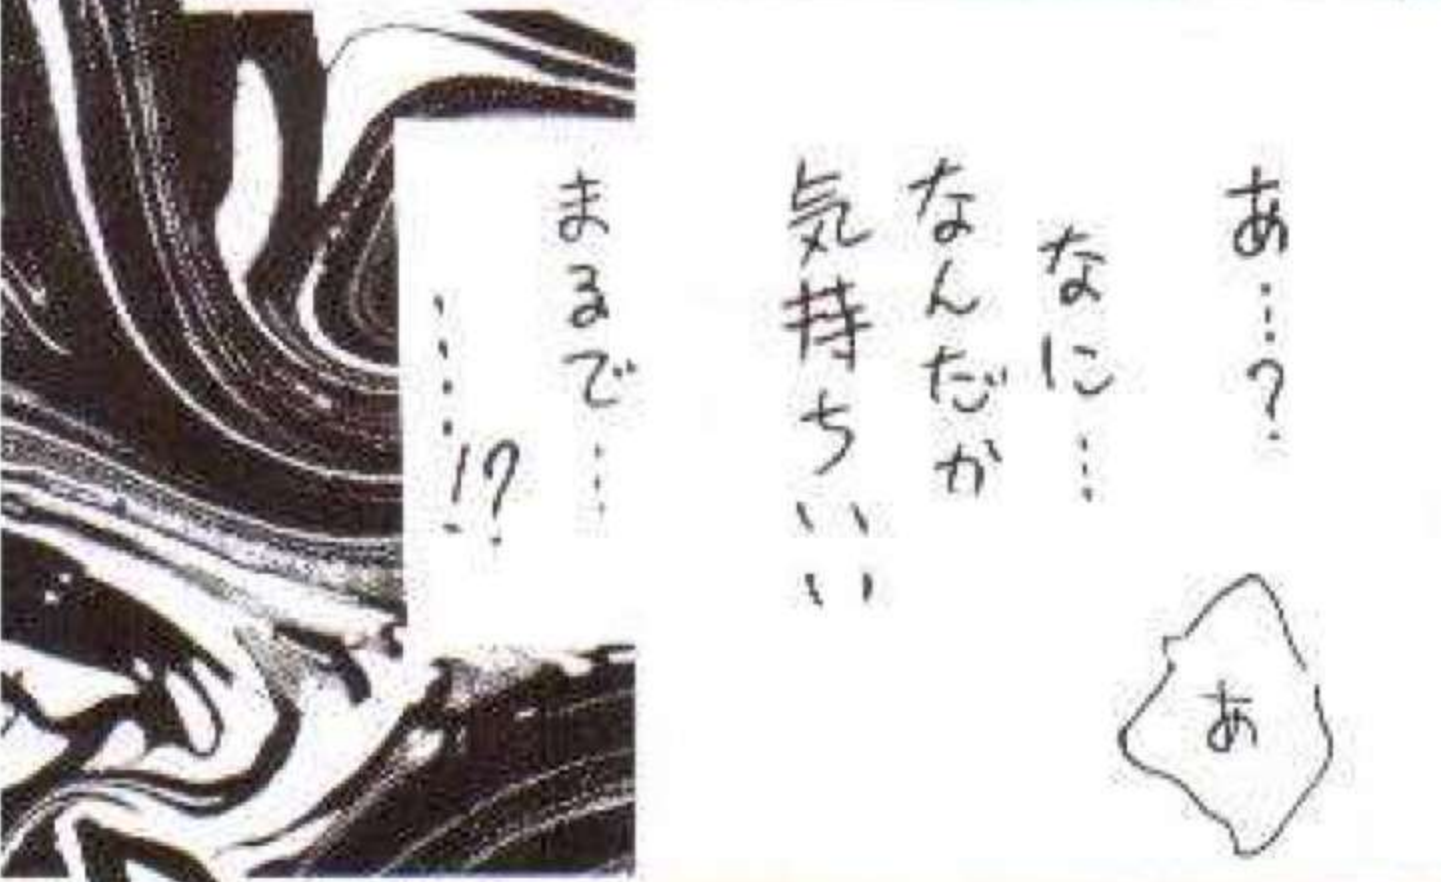 あ…?
なに…
なんだか
気持ちいい
あ
まるで…
……!?